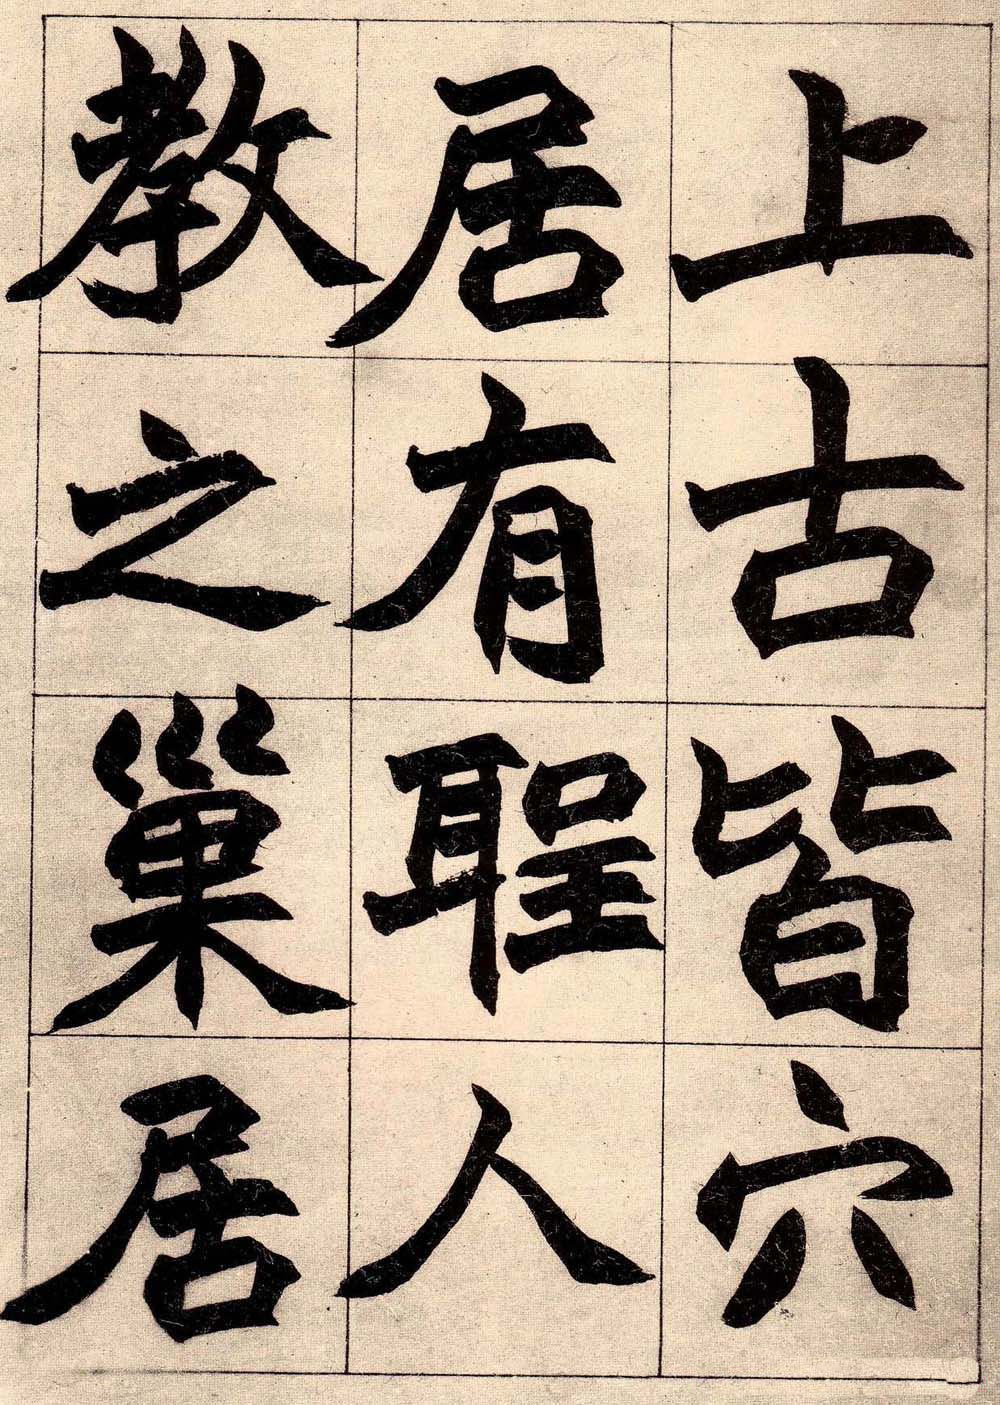 上古皆穴
居有聖人
教之巢居